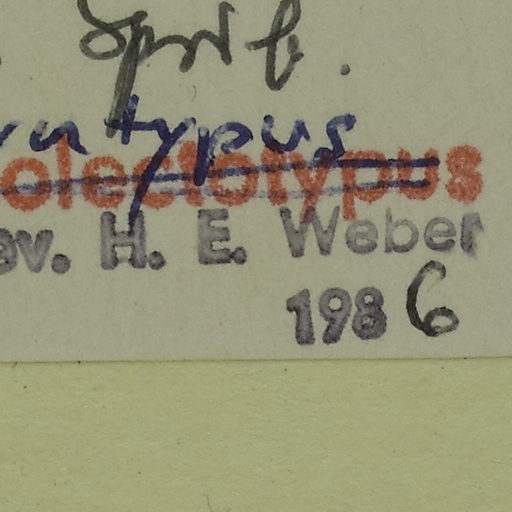 Sprib.
ratypus
olectotypus
ev. H. E. Weber
1986